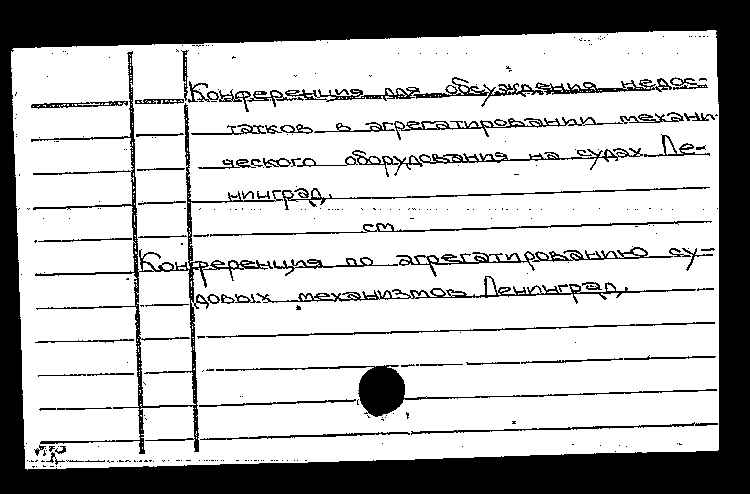 Конференция для обсуждения недос=
татков в агрегатировании механи
ческого оборудования на судах Ле-
нинград.
см
Конференция по агрегатированию су=
довых механизмов Ленинград.